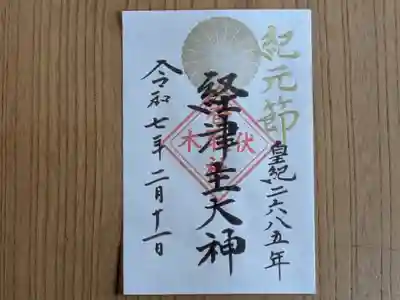 紀元節
皇紀二六八五年
経津主大神
令和七年二月十一日
伏
木